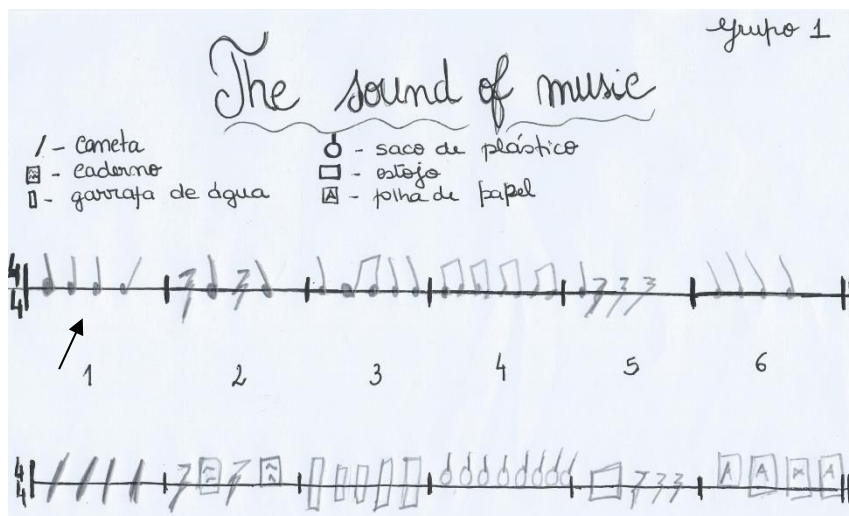 Grupo 1
The sound of music
/ - caneta
- caderno
- garrafa de água
- saco de plástico
- estojo
A - folha de papel
4 4
1 2 3 4 5 6
4 4
A A A A